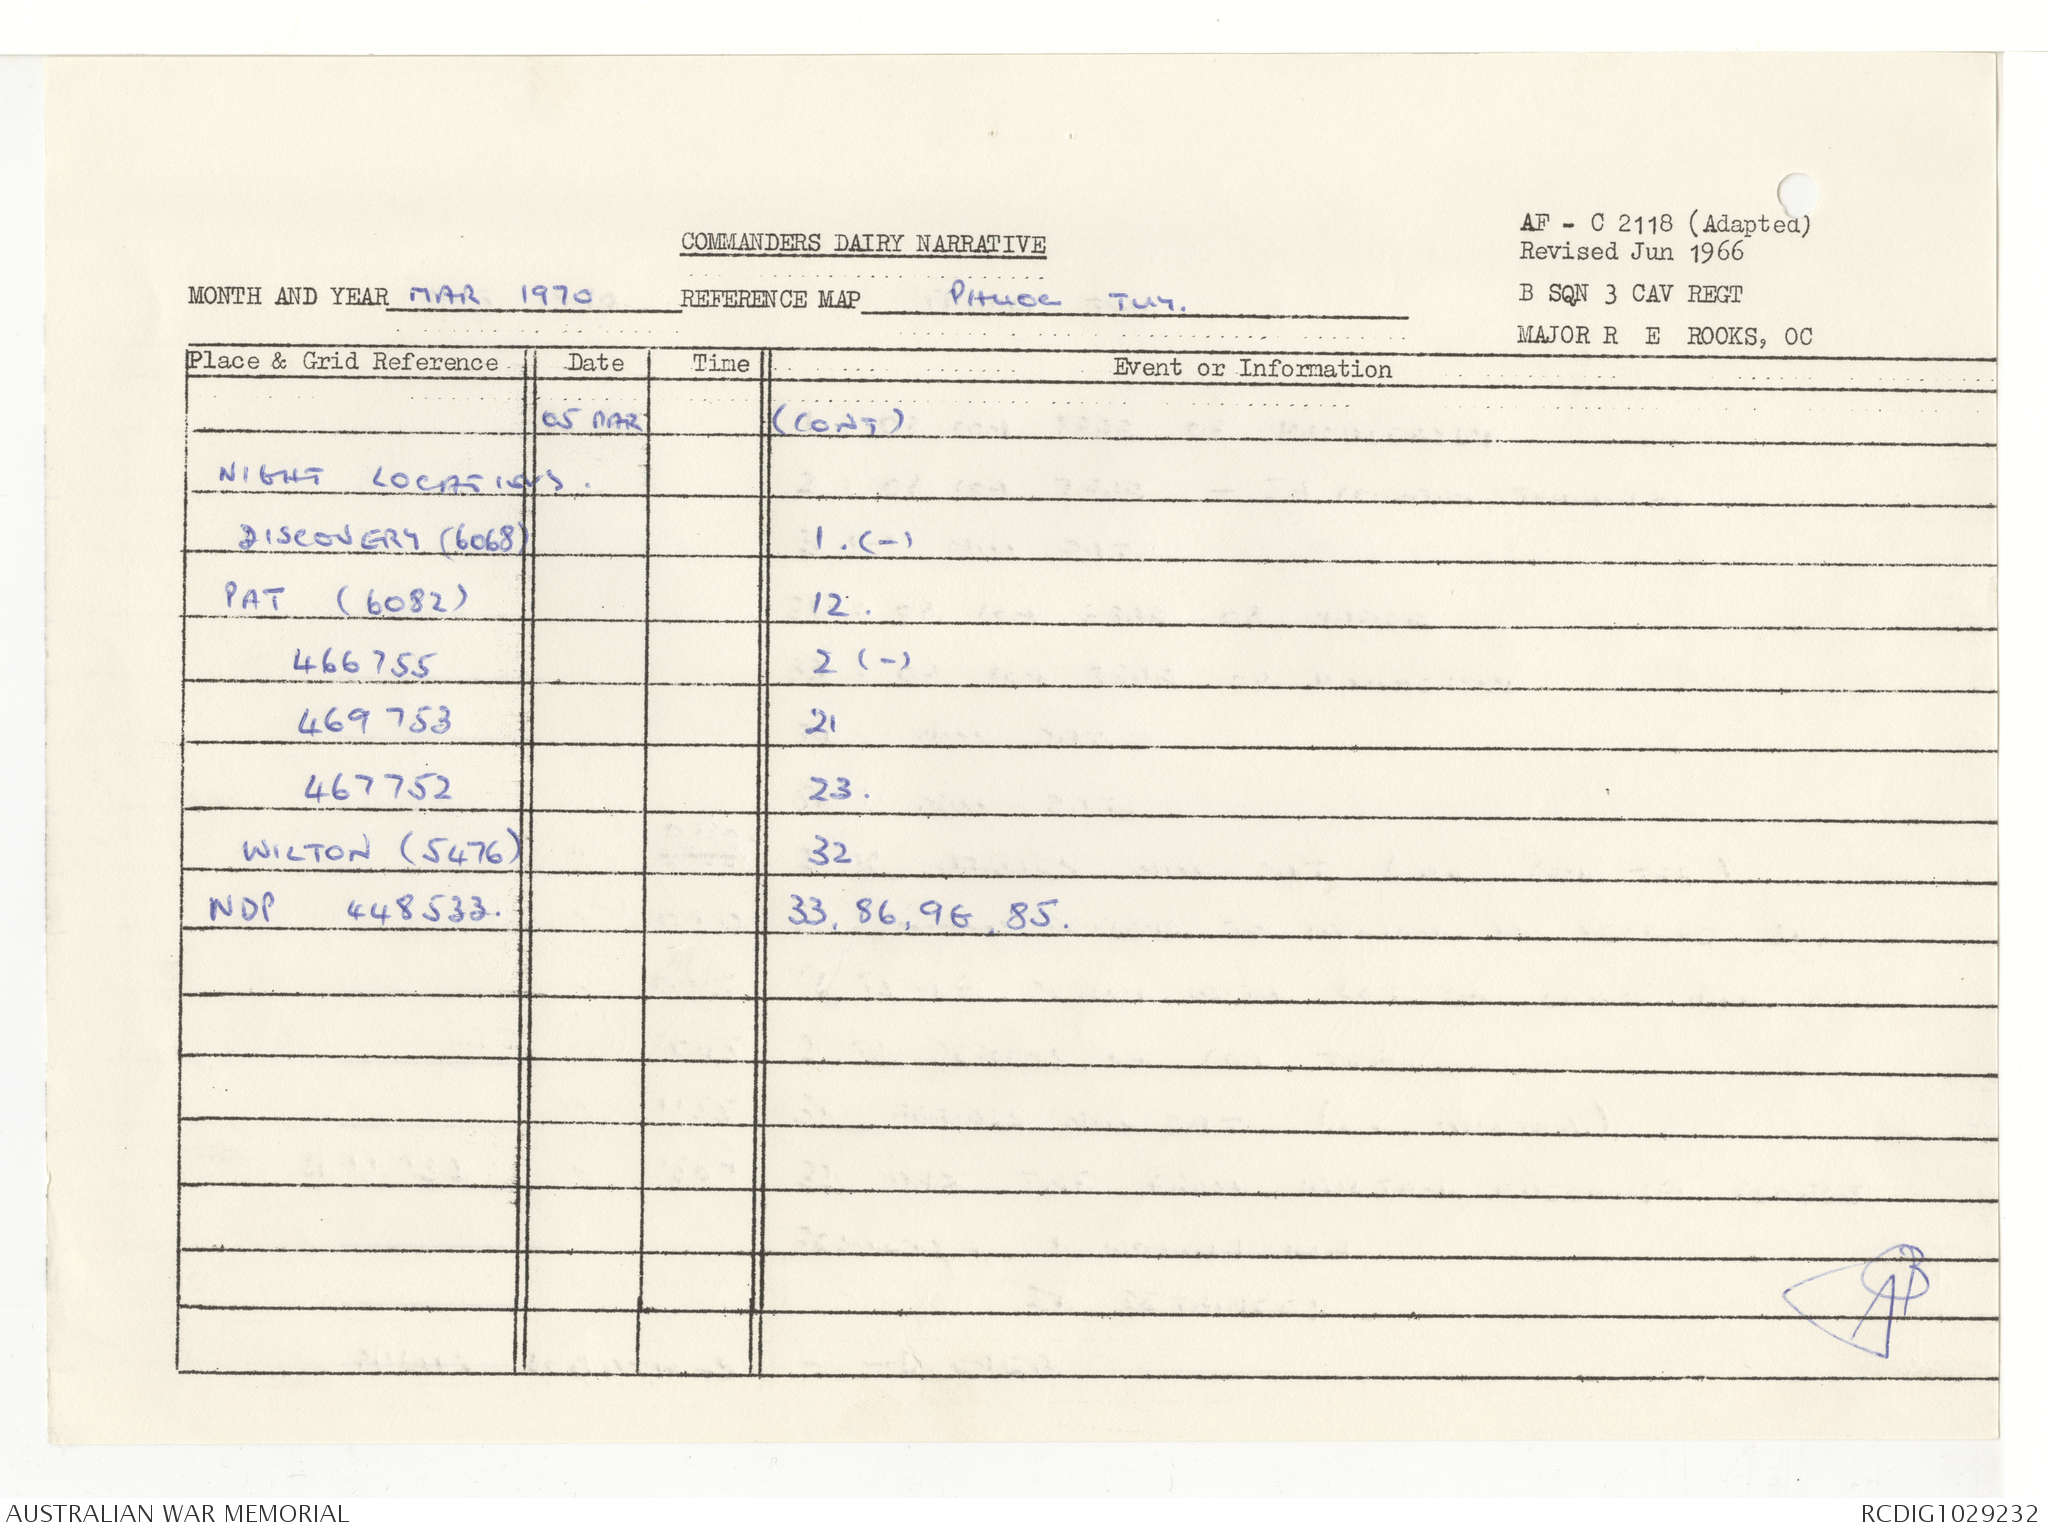 AF - C 2118 (Adapted)
COMMANDERS DAIRY NARRATIVE
Revised Jun 1966
MONTH AND YEAR MAR 1970 REFERENCE MAP PHUOC TUY.
B SQN 3 CAV REGT
MAJOR R E ROOKS, OC
Place & Grid Reference Date Time Event or Information
05 MAR (CONT)
NIGHT LOCATIONS.
DISCOVERY (6068) 1.(-)
PAT (6082) 12.
466755 2 (-)
469753 21
467752 23.
WILTON (5476) 32
NDP 448533. 33, 86, 9G, 85.
AUSTRALIAN WAR MEMORIAL RCDIG1029232